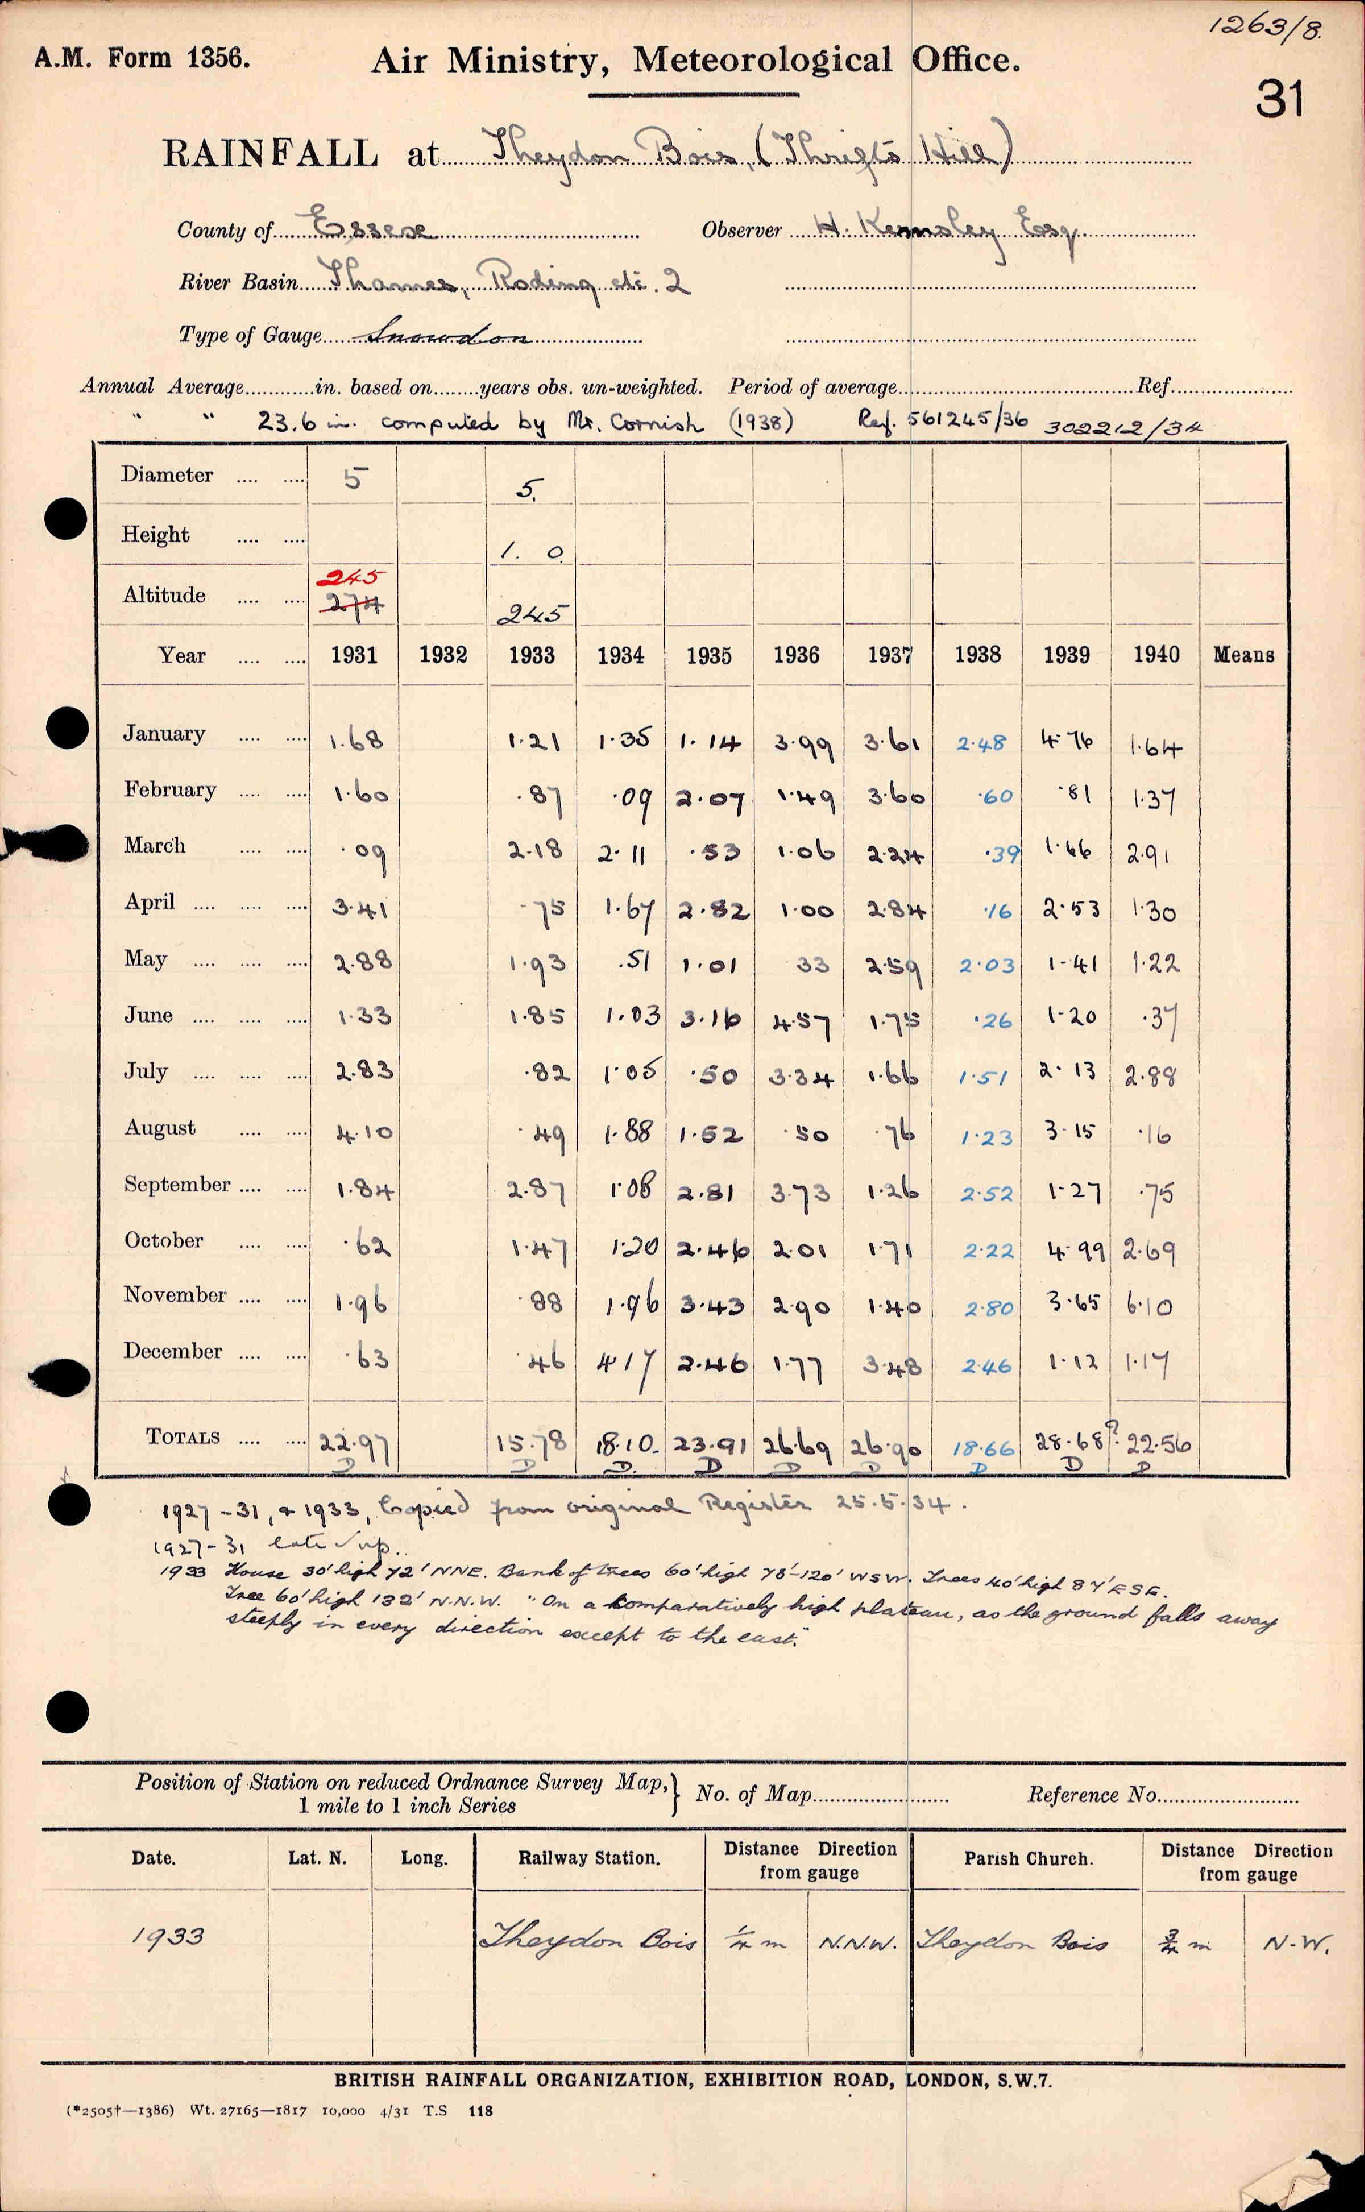 1263/8.
A.M. Form 1356. Air Ministry, Meteorological Office.
31
RAINFALL at Theydon Bois, (Thrifts Hill)
County of Essex Observer H. Kemsley Esq.
River Basin Thames, Roding etc. 2
Type of Gauge Snowdon
Annual Average in. based on years obs. un-weighted. Period of average Ref.
" " 23.6 in. computed by Mr. Cornish (1938) Ref. 561245/36 302212/34
Diameter 5 5.
Height 1. 0
245
Altitude 274 245
Year 1931 1932 1933 1934 1935 1936 1937 1938 1939 1940 Means
January 1.68 1.21 1.35 1.14 3.99 3.61 2.48 4.76 1.64
February 1.60 .87 .09 2.07 1.49 3.60 .60 .81 1.37
March .09 2.18 2.11 .53 1.06 2.24 .39 1.66 2.91
April 3.41 .75 1.67 2.82 1.00 2.84 .16 2.53 1.30
May 2.88 1.93 .51 1.01 33 2.59 2.03 1.41 1.22
June 1.33 1.85 1.03 3.16 4.57 1.75 .26 1.20 .37
July 2.83 .82 1.05 .50 3.34 1.66 1.51 2.13 2.88
August 4.10 .49 1.88 1.52 .50 .76 1.23 3.15 .16
September 1.84 2.87 1.08 2.81 3.73 1.26 2.52 1.27 .75
October .62 1.47 1.20 2.46 2.01 1.71 2.22 4.99 2.69
November 1.96 .88 1.96 3.43 2.90 1.40 2.80 3.65 6.10
December .63 .46 4.17 2.46 1.77 3.48 2.46 1.12 1.17
TOTALS 22.97 15.78 18.10 23.91 26.69 26.90 18.66 28.68? 22.56
D D D. D D D D D D
1927-31, & 1933, Copied from original Register 25.5.34.
1927-31 late
1933 House 30' high 72' NNE. Bank of trees 60' high 78'-120' WSW. Trees 40' high 87' ESE.
Tree 60' high 132' N.N.W. "On a comparatively high plateau, as the ground falls away
steeply in every direction except to the east."
Position of Station on reduced Ordnance Survey Map,} No. of Map Reference No.
1 mile to 1 inch Series
Date. Lat. N. Long. Railway Station. Distance Direction from gauge Parish Church. Distance Direction from gauge
1933 Theydon Bois 1/4 m N.N.W. Theydon Bois 3/4 m N.W.
BRITISH RAINFALL ORGANIZATION, EXHIBITION ROAD, LONDON, S.W.7.
(*2505†—1386) Wt. 27165—1817 10,000 4/31 T.S 118